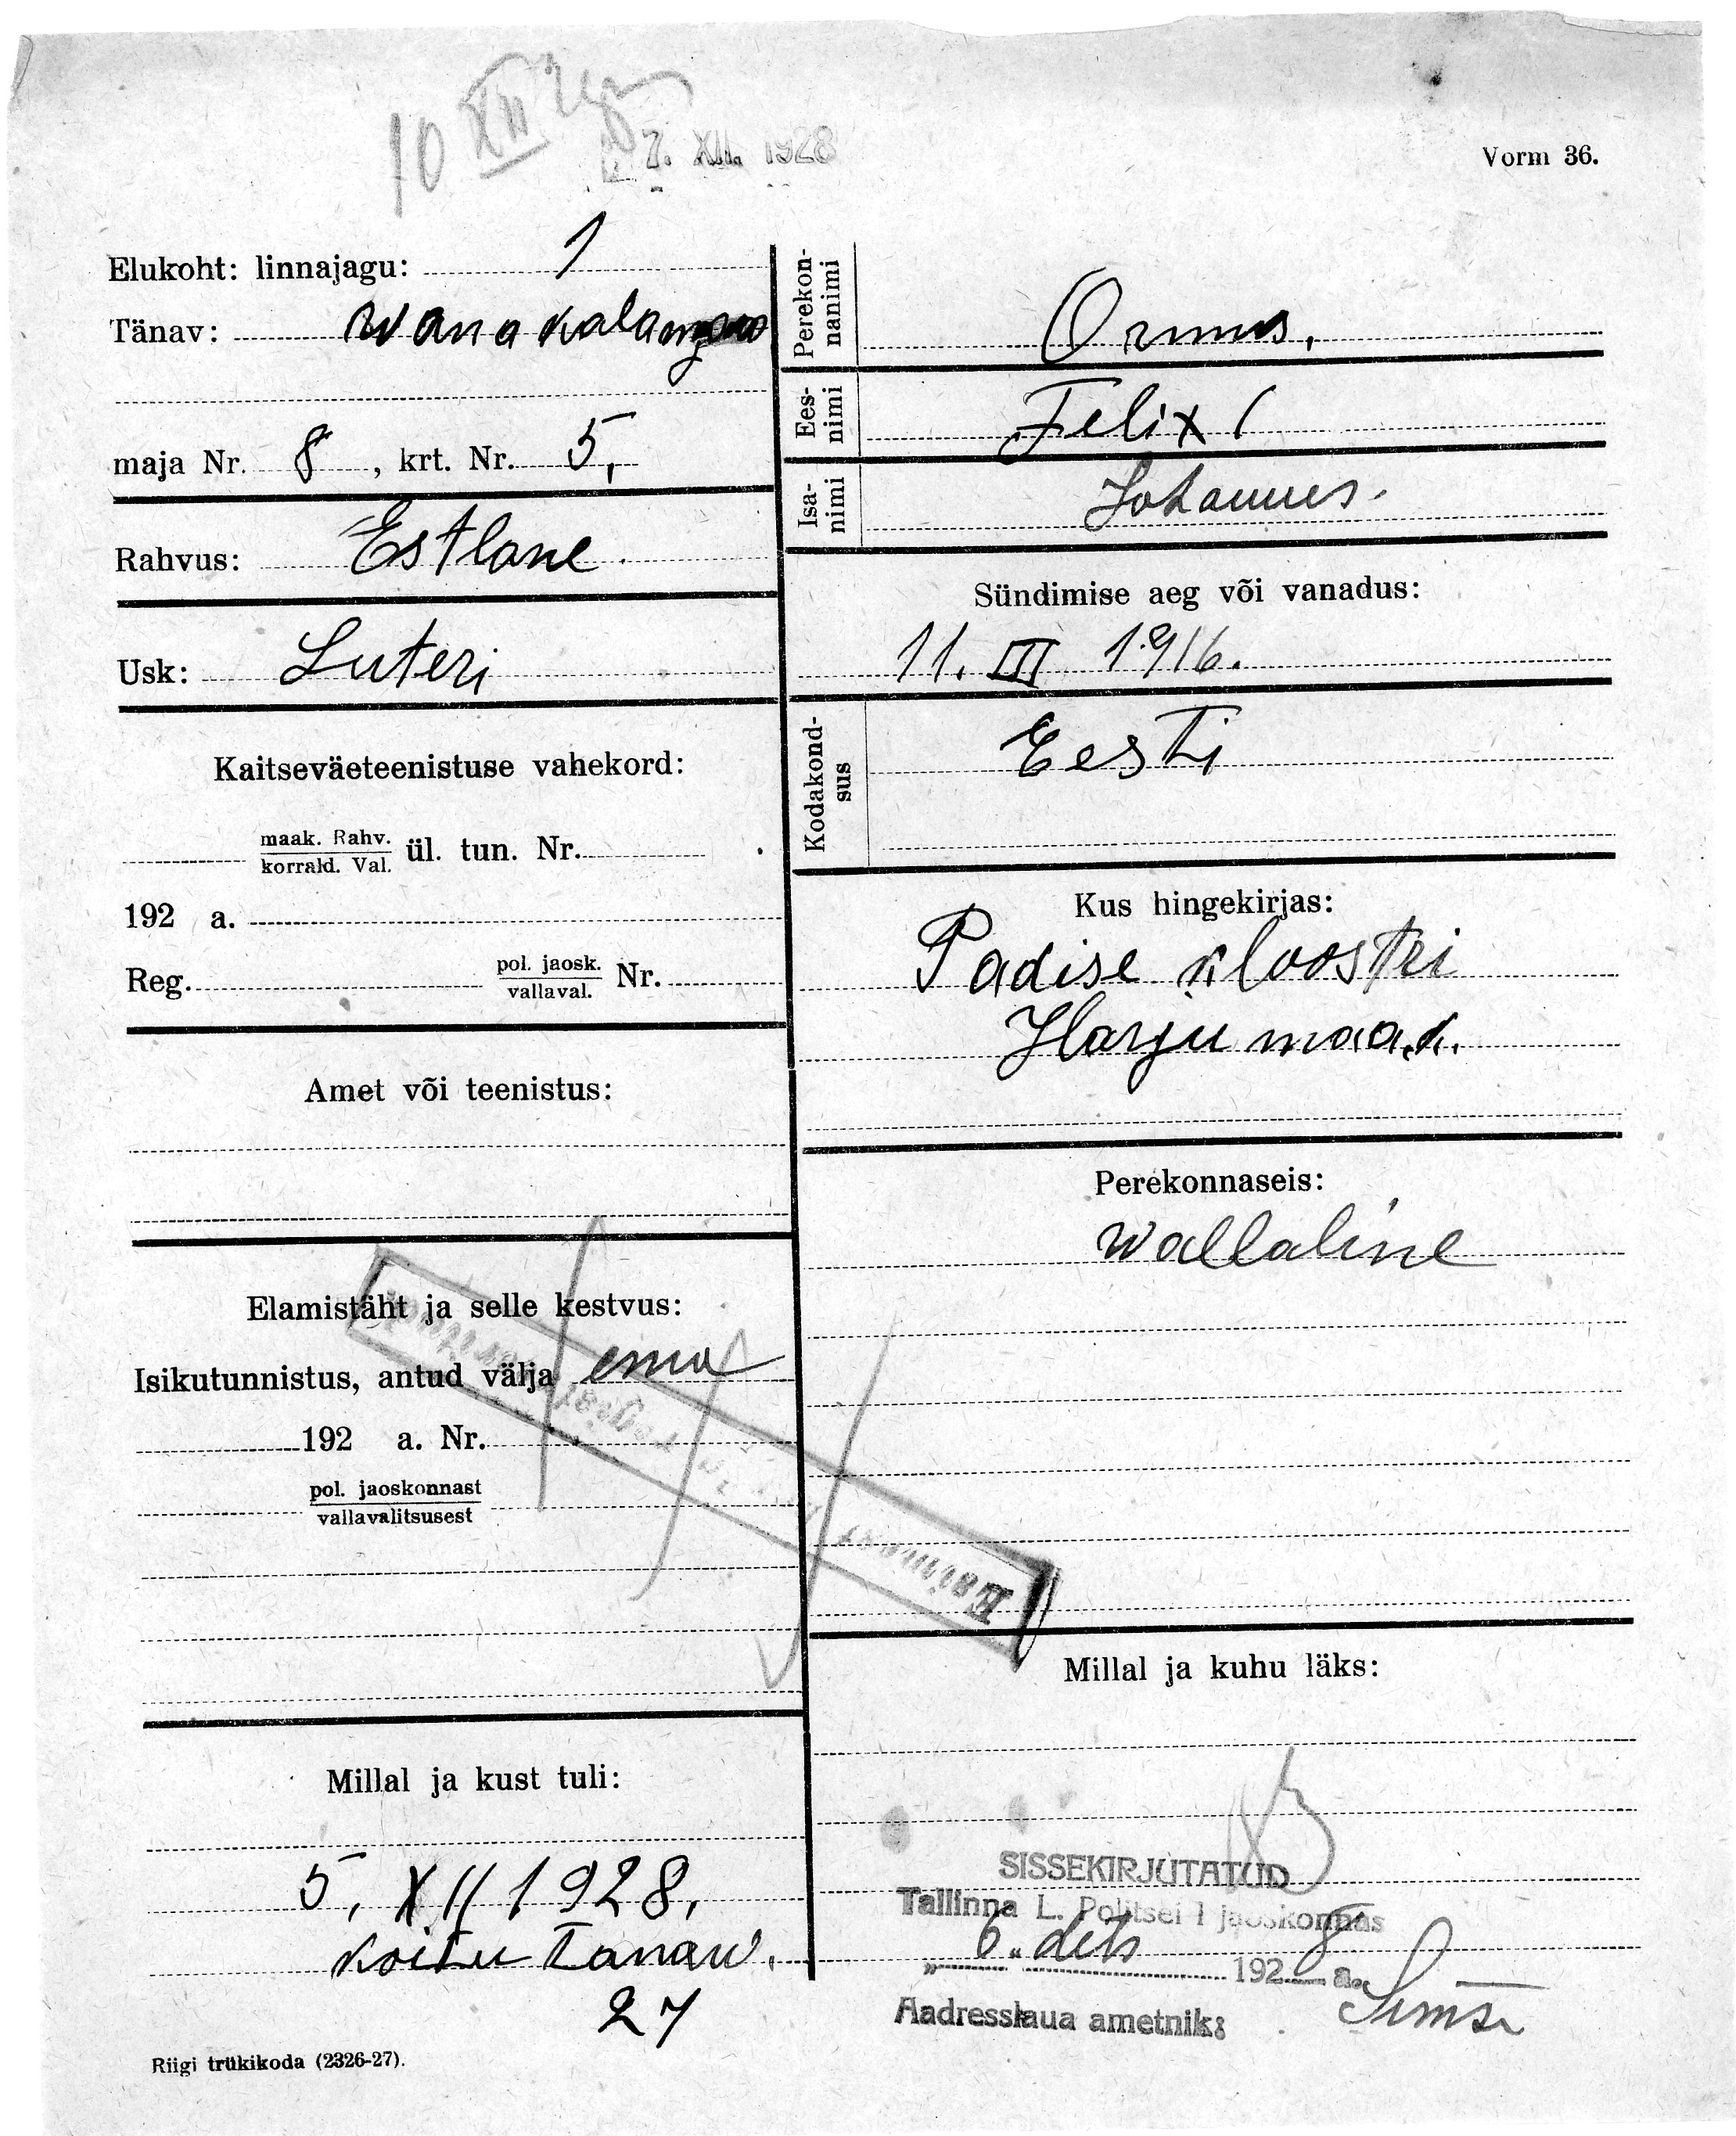 10 XII
7. XII 1928
Vorm 36.
Elukoht: linnajagu: 1
Tänav: Wana Kalam
maja Nr. 8, krt. Nr. 5,
Rahvus: Estlane.
Usk: Luteri
Kaitseväeteenistuse vahekord:
maak. Rahv.
korrald. Val. ül. tun. Nr.
192 a.
Reg. pol. jaosk.
vallaval. Nr.
Amet või teenistus:
Elamistäht ja selle kestvus:
Isikutunnistus, antud välja ema
192 a. Nr.
pol. jaoskonnast
vallavalitsusest
Millal ja kust tuli:
5, XII 1928,
Koitu Tänaw.
27
Riigi trükikoda (2326-27).
Perekon-
nanimi
Ormus,
Ees-
nimi Felix
Isa-
nimi Johannes.
Sündimise aeg või vanadus:
11. III 1916.
Kodakond-
sus Eesti
Kus hingekirjas:
Padise kloostri
Harju maak.
Perekonnaseis:
Wallaline
Eelmises
Millal ja kuhu läks:
SISSEKIRJUTATUD
Tallinna L. Politsei I jaoskonnas
"6." dets 1928 a.
Aadresslaua ametnik: